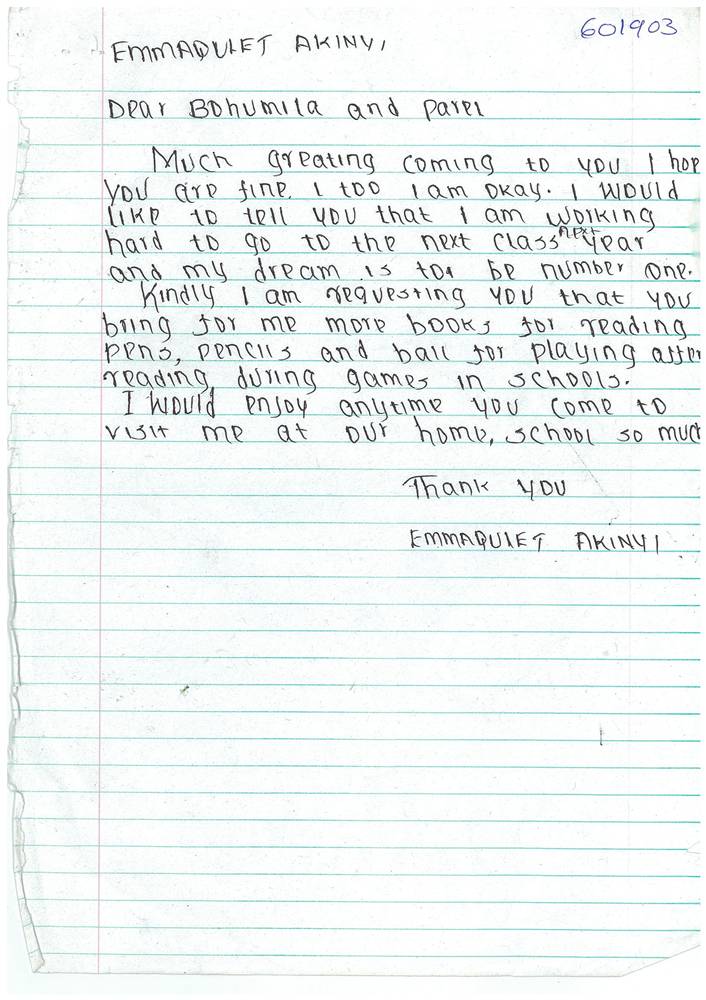 601903
EMMAQUIET AKINYI
Dear Bohumila and Pavel
Much greating coming to you I hop
you are fine. I too I am okay. I would
like to tell you that I am working
hard to go to the next class next year
and my dream is to be number one.
Kindly I am requesting you that you
bring for me more books for reading
pens, pencils and ball for playing after
reading, during games in schools.
I would enjoy anytime you come to
visit me at our home, school so much
Thank you
EMMAQUIET AKINYI